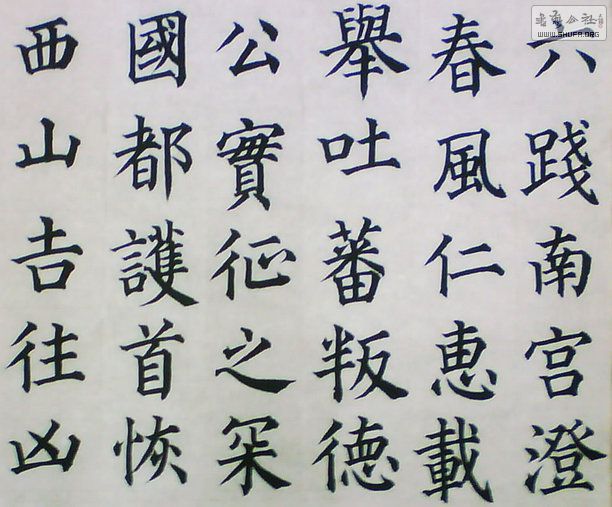 六踐南宫澄
春風仁恵載
舉吐蕃叛徳
公實征之罙
國都護首恢
西山吉往凶
WWW.SHUFA.ORG